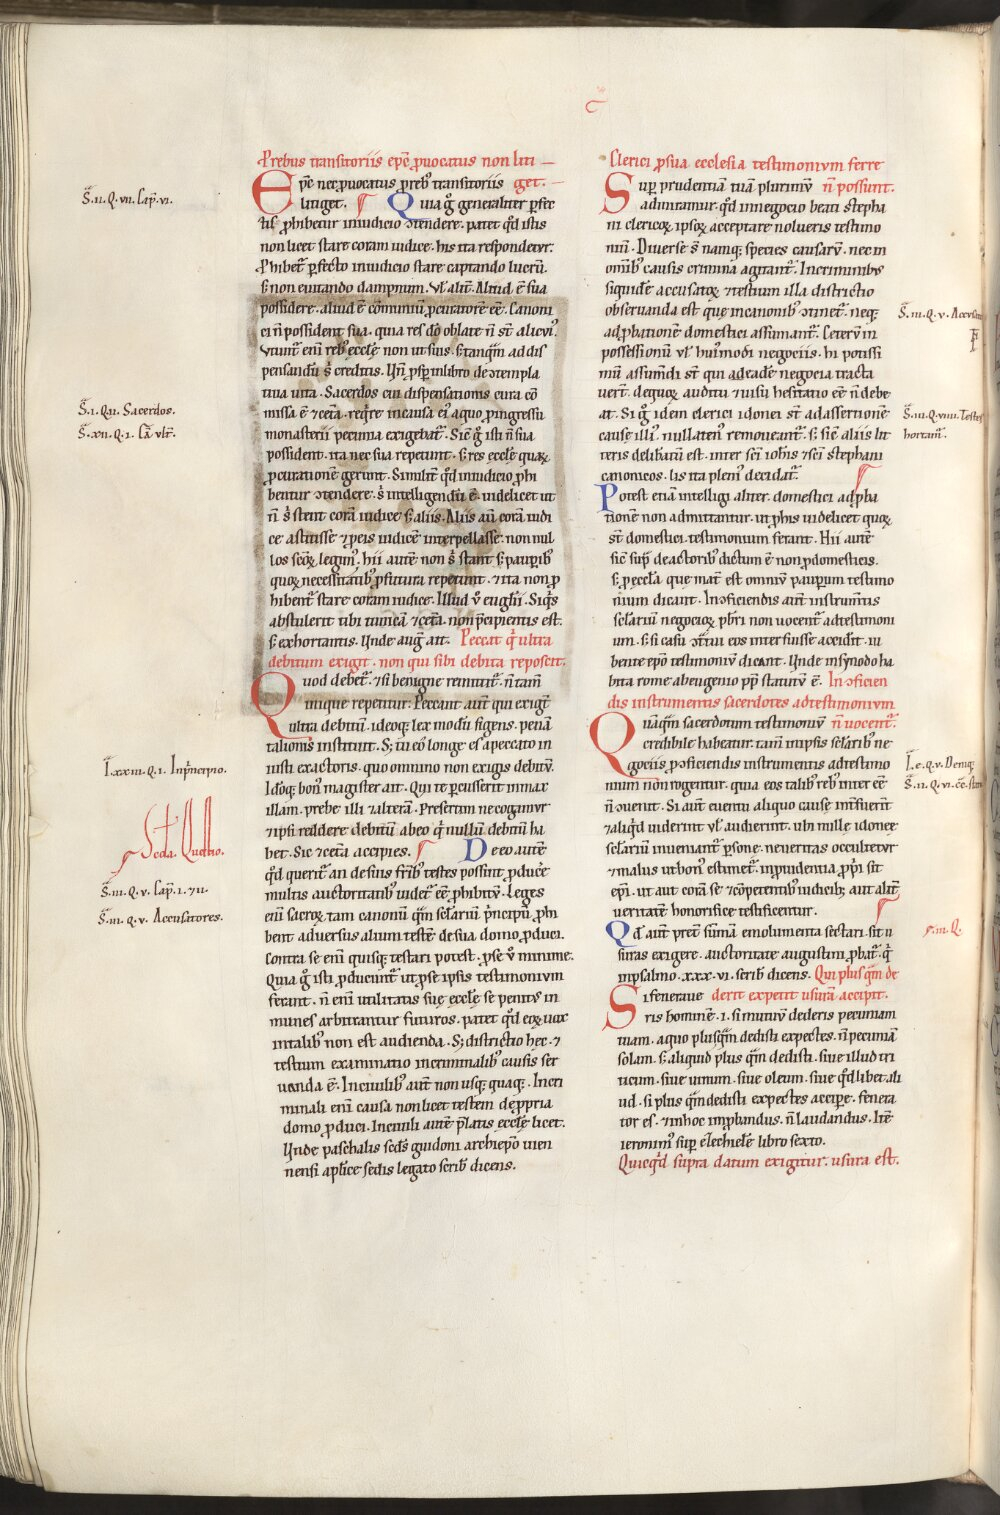 P rebus transitoriis epc̄ ꝓuocatus non liti
Epc̄ nec ꝓuocatus ꝓ reb᷒ transitoriis get.
litiget. Quia g̊ generaliter ꝑfec
tis ꝓhibetur in iudicio ↄtendere. patet qd̄ istis
non licet stare coram iudice. his ita respondetur.
Ꝓhibet᷑ ꝑfecto in iudicio stare captando lucrū.
s; non euitando dampnum. Vl̓ alit̓. Aliud ē sua
possidere. aliud ē cōmuniū ꝓcuratorē eē. Canoni
ci n̄ possident sua. quia res dō oblate n̄ st̄ alicui᷒.
Vtunt᷑ eni reb᷒ eccl̓e non ut suis. s; tanq̄m ad dis
pensandū s᷑ creditis. Un̄ ꝓsꝑ in libro de ↄtempla
tiua uita. Sacerdos cui dispensationis cura cō
missa ē ⁊ cetā. req̓re in causa ei᷒ a quo ꝓ ingressu
monasterii pecunia exigebat᷑. Sic̄ g̊ isti n̄ sua
possident. ita nec sua repetunt. s; res eccl̓e quaꝝ
ꝓcurationē gerunt. Similit̓ qd̄ in iudicio ꝓhi
bentur ↄtendere. s᷑ intelligendū ē. uidelicet ut
n̄ s᷑ stent corā iudice s; aliis. Aliis aū corā iudi
ce astitisse ⁊ ꝓ eis iudicē interpellasse. non nul
los sc̄oꝝ legim᷒. hii autē non s᷑ stant s; pauꝑib᷒
quoꝝ necessitatib᷒ ꝓfutura repetunt. ⁊ ita non ꝓ
hibent᷑ stare coram iudice. Illud v̊ eugl̄ii. Siq̓s
abstulerit tibi tunicā ⁊ cetā. non p̄cipientis est.
s; exhortantis. Unde aug̓ ait. Peccat q̓ ultra
debitum exigit. non qui sibi debita reposcit.
Quod debet᷑. ⁊ si benigne remittit᷑. n̄ tam̄
inique repetitur. Peccant aut̄ qui exigt̄
ultra debitū. ideoq; lex modū figens. penā
talionis instituit. S; tu eō longe es a peccato in
iusti exactoris. quo omnino non exigis debitū.
Idōq; bon᷒ magister ait. Qui te ꝑcusserit in max
illam. p̄be illi ⁊ alterā. Presertim ne cogamur
⁊ ipsi reddere debitū ab eo q̓ nullū debitū ha
bet. Sic ⁊ cetā accipies. De eo autē
qd̄ querit᷑ an de suis frib᷒ testes possint ꝓducˀe
multis auctoritatib᷒ uidet᷑ eē ꝓhibitū. Leges
eni sacroꝝ tam canonū q̄m sclariū p̓ncipū ꝓhi
bent aduersus alium testē de sua domo ꝓduci.
contra se eni quisq; testari potest. ꝓ se v̊ minime.
Quia g̊ isti ꝓducunt᷑ ut ꝓ se ipsis testimonium
ferant. n̄ eni utilitatis sue eccl̓e se penit᷒ in
munes arbitrantur futuros. patet qd̄ eoꝝ uox
in talib᷒ non est audienda. S; districtio hec. ⁊
testium examinatio in criminalib᷒ causis ser
uanda ē. In ciuilib᷒ aut̄ non usq; quaq;. In cri
minali eni causa non licet testem de ꝓpria
domo ꝓduci. In ciuili autē p̄latis eccl̓e licet.
Unde paschalis scd̄s guidoni archiepō uien
nensi apl̓ice sedis legato scrib̄ dicens.
Clerici ꝓ sua ecclesia testimonium ferre
Suꝑ prudentiā tuā plurimū n̄ possunt.
admiramur. qd̄ in negocio beati stepha
ni clericoꝝ ipsoꝝ acceptare nolueris testimo
niū. Diuerse s᷑ namq; species causarū. nec in
omīb᷒ causis crimina agitant᷑. In criminib᷒
siquidē accusatoꝝ ⁊ testium illa districtio
obseruanda est que in canonib᷒ ↄtinet᷑. neq;
ad ꝓbationē domestici assumant᷑. Ceterū in
possessionū ul̓ hui᷒modi negociis. hi potissi
mū assum̄di st̄ qui a deade negocia tracta
uert̄. de quoꝝ auditu ⁊ uisu hesitatio eē n̄ debe
at. Si g̊ idem clerici idonei st̄ ad assertionē
cause illi᷒. nullaten᷒ remoueant᷑. s; sic̄ aliis lit
teris delibatū est. inter sc̄i ioh̄is ⁊ sc̄i stephani
canonicos. lis ita pleni᷒ decidat᷑.
Potest etiā intelligi aliter. domestici ad ꝓba
tionē non admittantur. ut ꝓ his uidelicet quoꝝ
st̄ domestici testimonium ferant. Hii autē
sic̄ sup̄ de actorib᷒ dictum ē non ꝓ domesticis.
s; ꝓ eccl̓a que mat̓ est omniū pauꝑum testimo
nium dicunt. In ↄficiendis aut̄ instrum̄tis
sclariū negocioꝝ pbr̄i non uocent᷑ ad testimoni
um. s; si casu ↄt̓ctui eos interfuisse accidit. iu
bente epō testimoniū dicant. Unde in synodo ha
bita rome ab eugenio pp̄ statutū ē. In ↄficien
dis instrumentis sacerdotes ad testimonium
Quāq̄m sacerdotum testimoniū n̄ uocent᷑.
credibile habeatur. tam̄ in ipsis sclarib᷒ ne
gociis ꝓ ↄficiendis instrumentis ad testimo
nium non rogentur. quia eos talib᷒ reb᷒ inter eē
n̄ ↄuenit. Si aut̄ euentu aliquo cause int̓fuer̄t
⁊ aliq̓d uiderint ul̓ audierint. ubi mille idonee
sclariū inueniant᷑ ꝑsone. ne ueritas occultetur
⁊ malus ut bon᷒ estimet᷑. in ꝓuidentia ꝓpr̄i sit
epī. ut aut corā se ⁊ cōpetentib᷒ iudicib᷒ aut alit̓
ueritatē honorifice testificentur.
Qd̄ aut̄ pret̓ sūmā emolumenta sectari. sit u
suras exigere. auctoritate augustini ꝓbat᷑. q̓
in psalmo .xxx.vi. scrib̄ dicens. Qui plus q̄m de
Si feneraue derit expetit usurā accipit.
ris hominē. i. si mutuū dederis pecuniam
tuam. a quo plus q̄m dedisti expectes. n̄ pecuniā
solam. s; aliquid plus q̄m dedisti. siue illud tri
ticum. siue uinum. siue oleum. siue qd̄libet ali
ud. si plus q̄m dedisti expectes acciꝑe. fenera
tor es. ⁊ in hoc imꝓbandus. n̄ laudandus. Itē
ieronim᷒ suꝑ ezechielē libro sexto.
Quicq̓d supra datum exigitur. usura est.
S̄. ii. Q. vii. Cap̄. vi.
S̄. i. Q. ii. Sacerdos.
S̄. xii. Q. i. C̄a vlt̄.
I. xxiii. Q. i. In p̓ncipio.
Scd̄a. Questio.
S̄. iii. Q. v. Cap̄. i. ⁊ ii.
S̄. iii. Q. v. Accusatores.
S̄. iii. Q. v. Accusato
S̄. iii. Q. viiii. Testes
hortam̓.
I. e. Q. v. Deniq;
S̄. ii. Q. vi.
iii. Q.